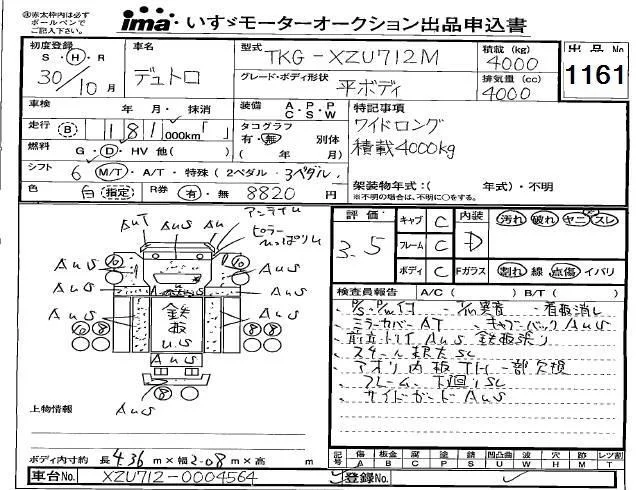 ㊟赤太枠内は必ず
ボールペンで
ご記入下さい。
ima いすゞモーターオークション出品申込書
初度登録
S・H・R
30/10月
車名
デュトロ
型式
TKG-XZU712M
グレード・ボディ形状
平ボディ
積載(kg)
4000
排気量(cc)
4000
出品No
1161
車検 年・月・抹消
走行 B 181,000km「 」
燃料 G・D・HV 他( )
シフト 6 M/T・A/T・特殊(2ペダル・3ペダル)
色 白 指定 R券 有・無 8820円
装備 A・P・P
C・S・W
タコグラフ
有・無 別体
( 年/ 月)
特記事項
ワイドロング
積載4000kg
架装物年式:( 年式)・不明
※不明の場合は、不明に○をする。
評価
3.5
キャブ C
フレーム C
ボディ C
内装 D
汚れ 破れ ヤニ スレ
Fガラス 割れ 線 点傷 イバリ
検査員報告 A/C( ) B/T( )
P/S・P/Wイフ 異音 看板消し
ミラーカバーAT キャブバックAus
Aus 鉄板張り
スチール SC
アオリ内板 一部欠損
フレーム 下廻りSC
サイドガードAus
AuT Aus Au
アンライム
ピラー
Aus
Aus
Aus
Aus
Aus
Aus
鉄
板
u.s
Aus
Aus
10
10
8
8
8
上物情報
ボディ内寸約 長4.36m×幅2.08m×高 m
車台No. XZU712-0004564
記号 傷A 板金B 腐C 塗P 錆S 凹凸曲U 波W 穴H 跡M レツ割T
登録No.